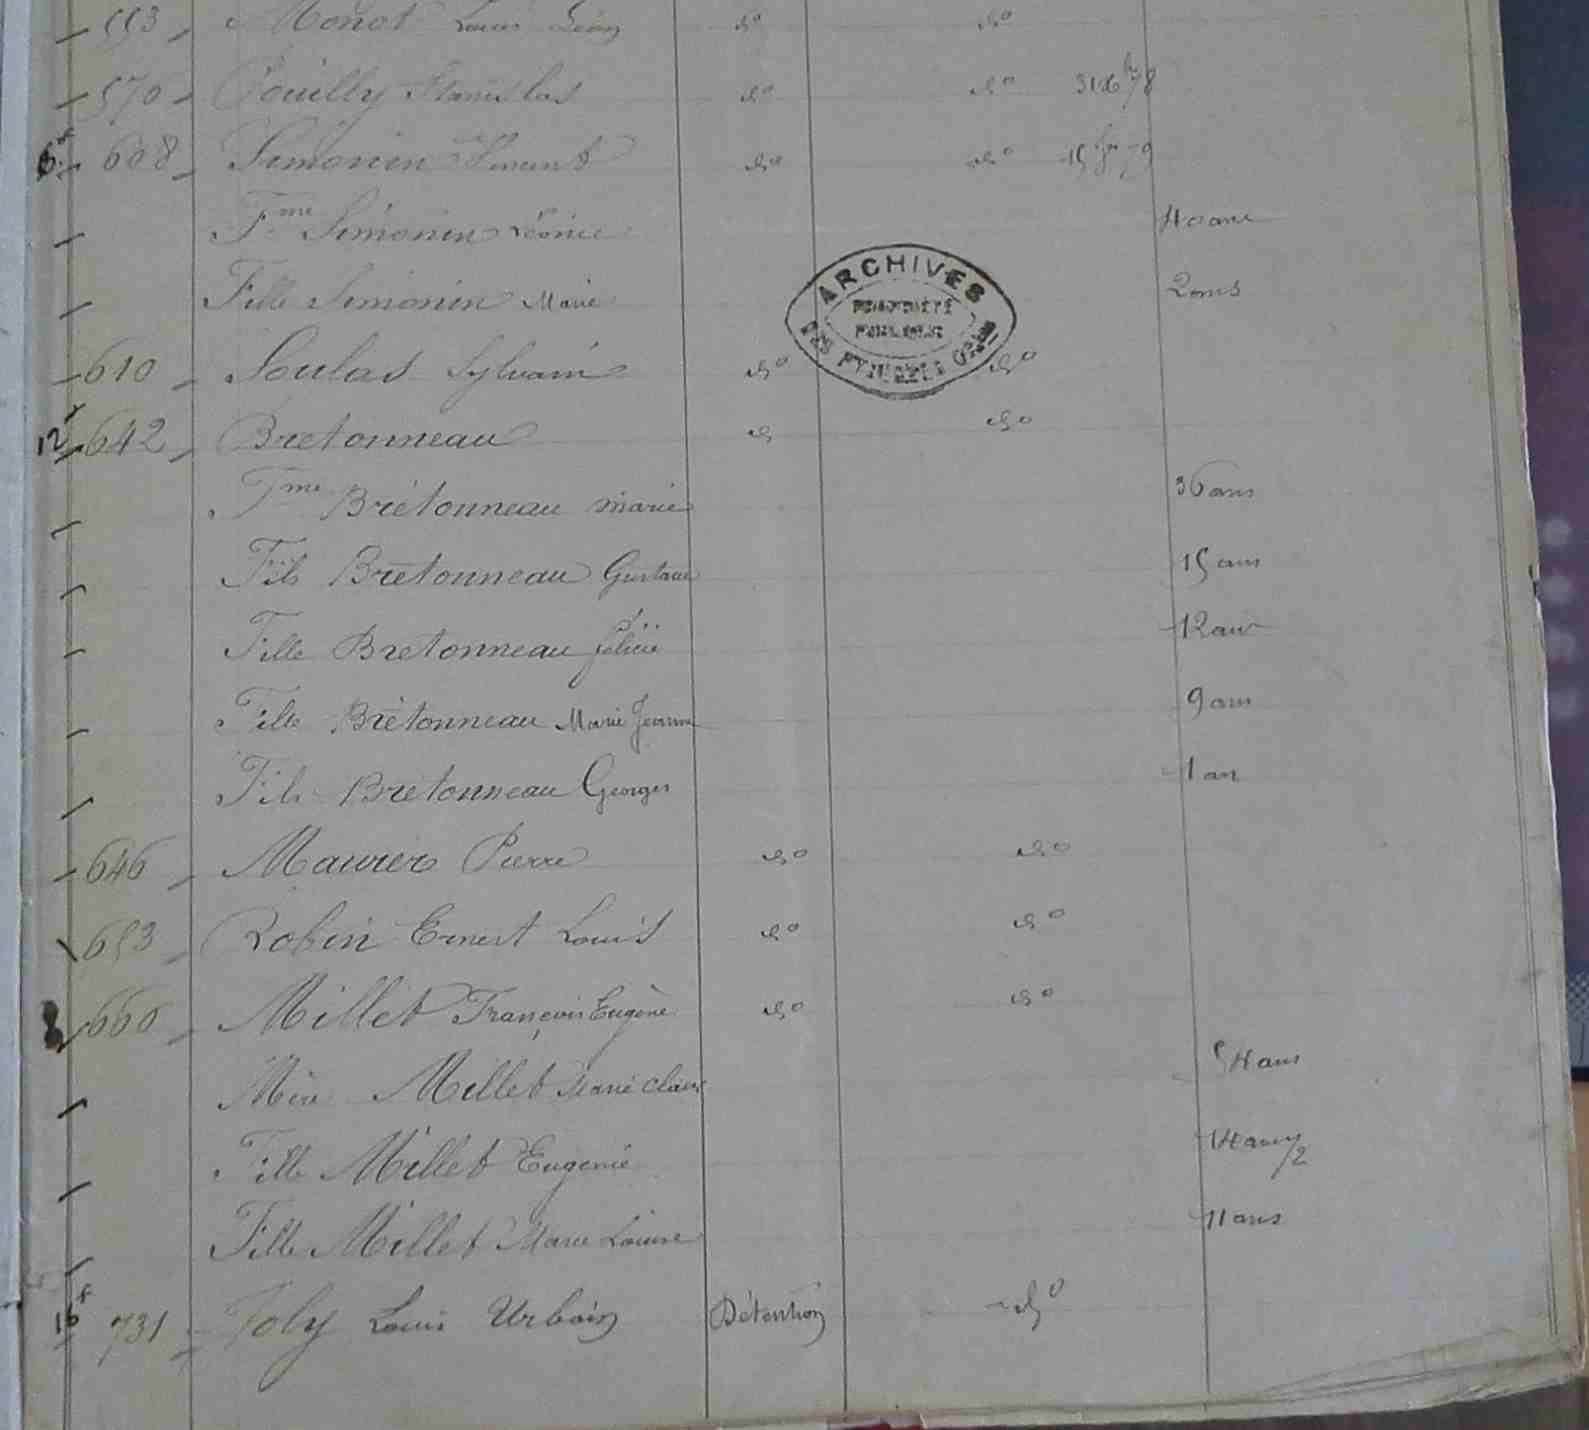 593 Monot Louis Léon do do
576 Pouilly Stanislas do do 31 Xbre 78
608 Simonin Vincent do do 79
Fme Simonin Léonie 40 ans
Fille Simonin Marie
610 Soulas Sylvain do do
12 642 Bretonneau do do
Fme Bretonneau Marie 36 ans
Fils Bretonneau Gustave 15 ans
Fille Bretonneau Félicie 12 ans
Fille Bretonneau Marie Jeanne 9 ans
Fils Bretonneau Georges 1 an
646 Maurier Pierre do do
653 Robin Ernest Louis do do
660 Millet François Eugène do do
Mère Millet Marie Claire 54 ans
Fille Millet Eugénie 14 ans 1/2
Fille Millet Marie Louise 11 ans
731 Joly Louis Urbain Détention do
ARCHIVES
PROPRIÉTÉ
PUBLIQUE
DES PYRÉNÉES Ories